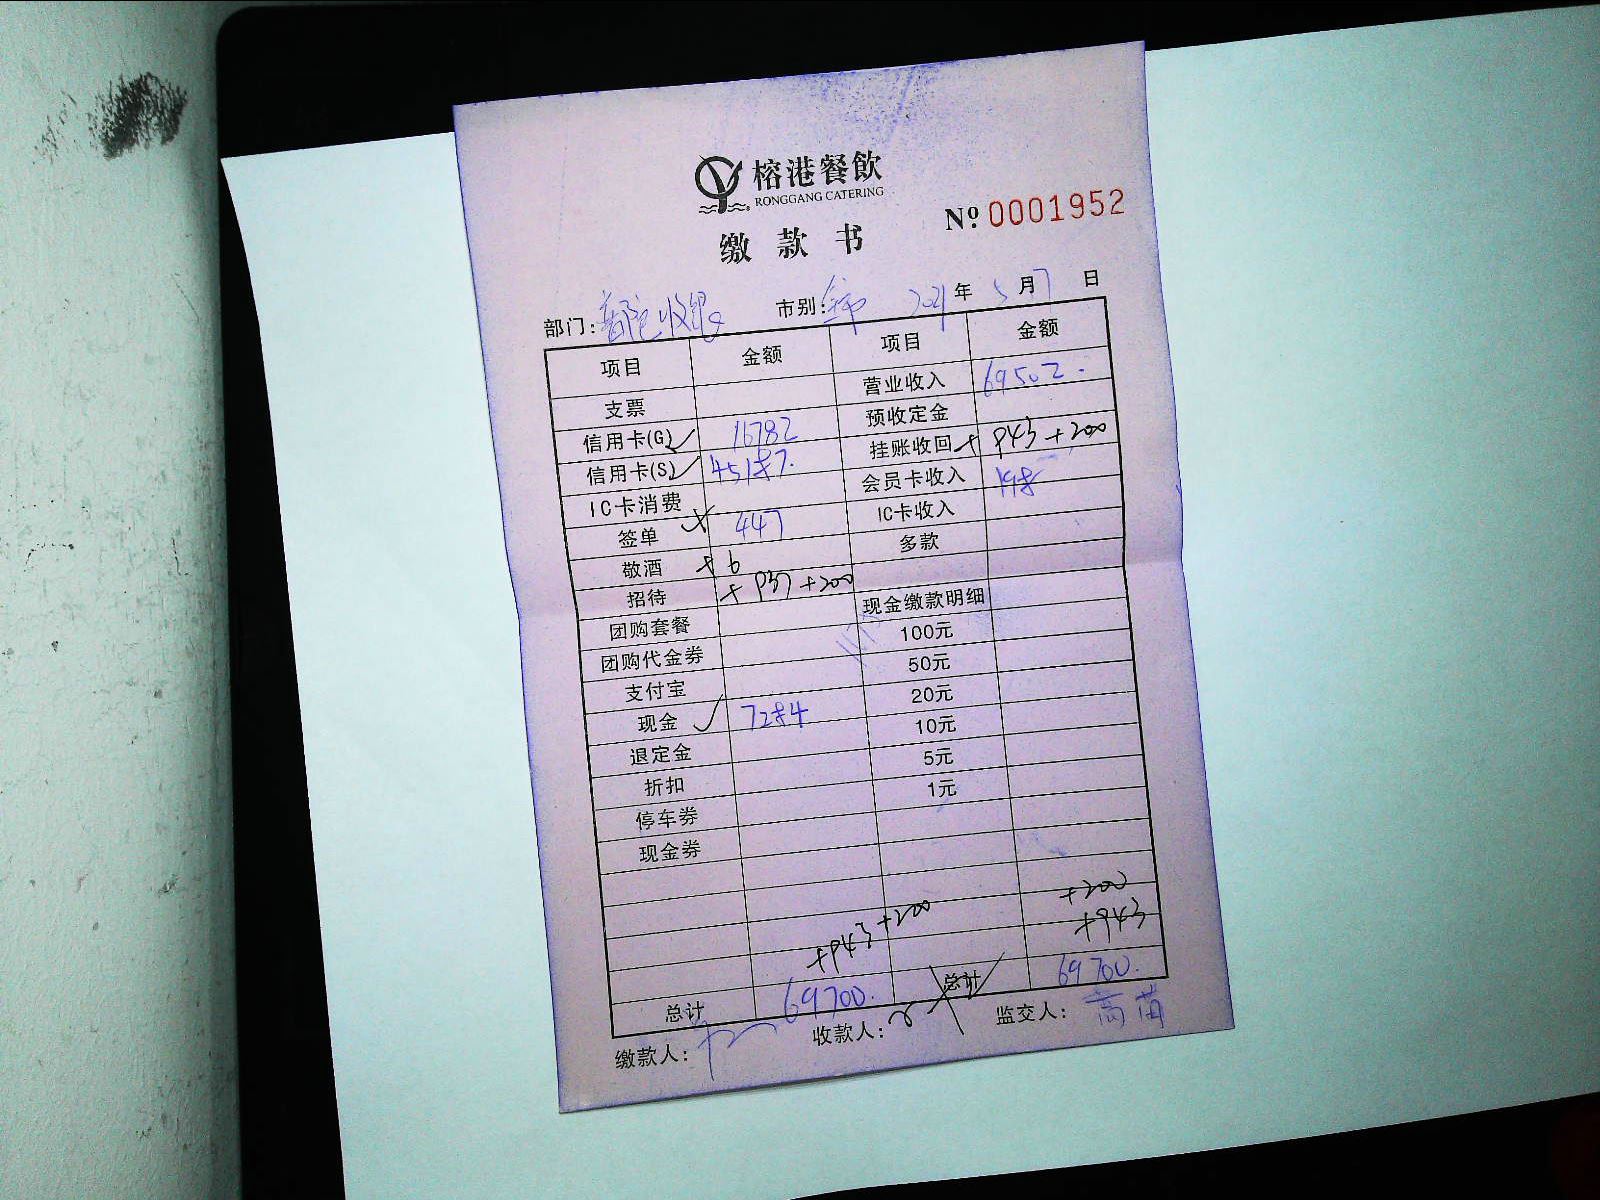 榕港餐飲
RONGGANG CATERING
缴款书
Nº 0001952
部门: 收银 市别: 2021年 5月7日
项目 金额 项目 金额
支票 营业收入 69502.
信用卡(G) ✓ 16782 预收定金
信用卡(S) ✓ 45187. 挂账收回 + 943+200
IC卡消费 会员卡收入 198
签单 447 IC卡收入
敬酒 +6 多款
招待 +937+200
团购套餐 现金缴款明细
团购代金券 100元
支付宝 50元
现金 ✓ 7284 20元
退定金 10元
折扣 5元
停车券 1元
现金券
+943+200 +200
+943
总计 69700. 总计 69700.
缴款人: 收款人: 监交人: